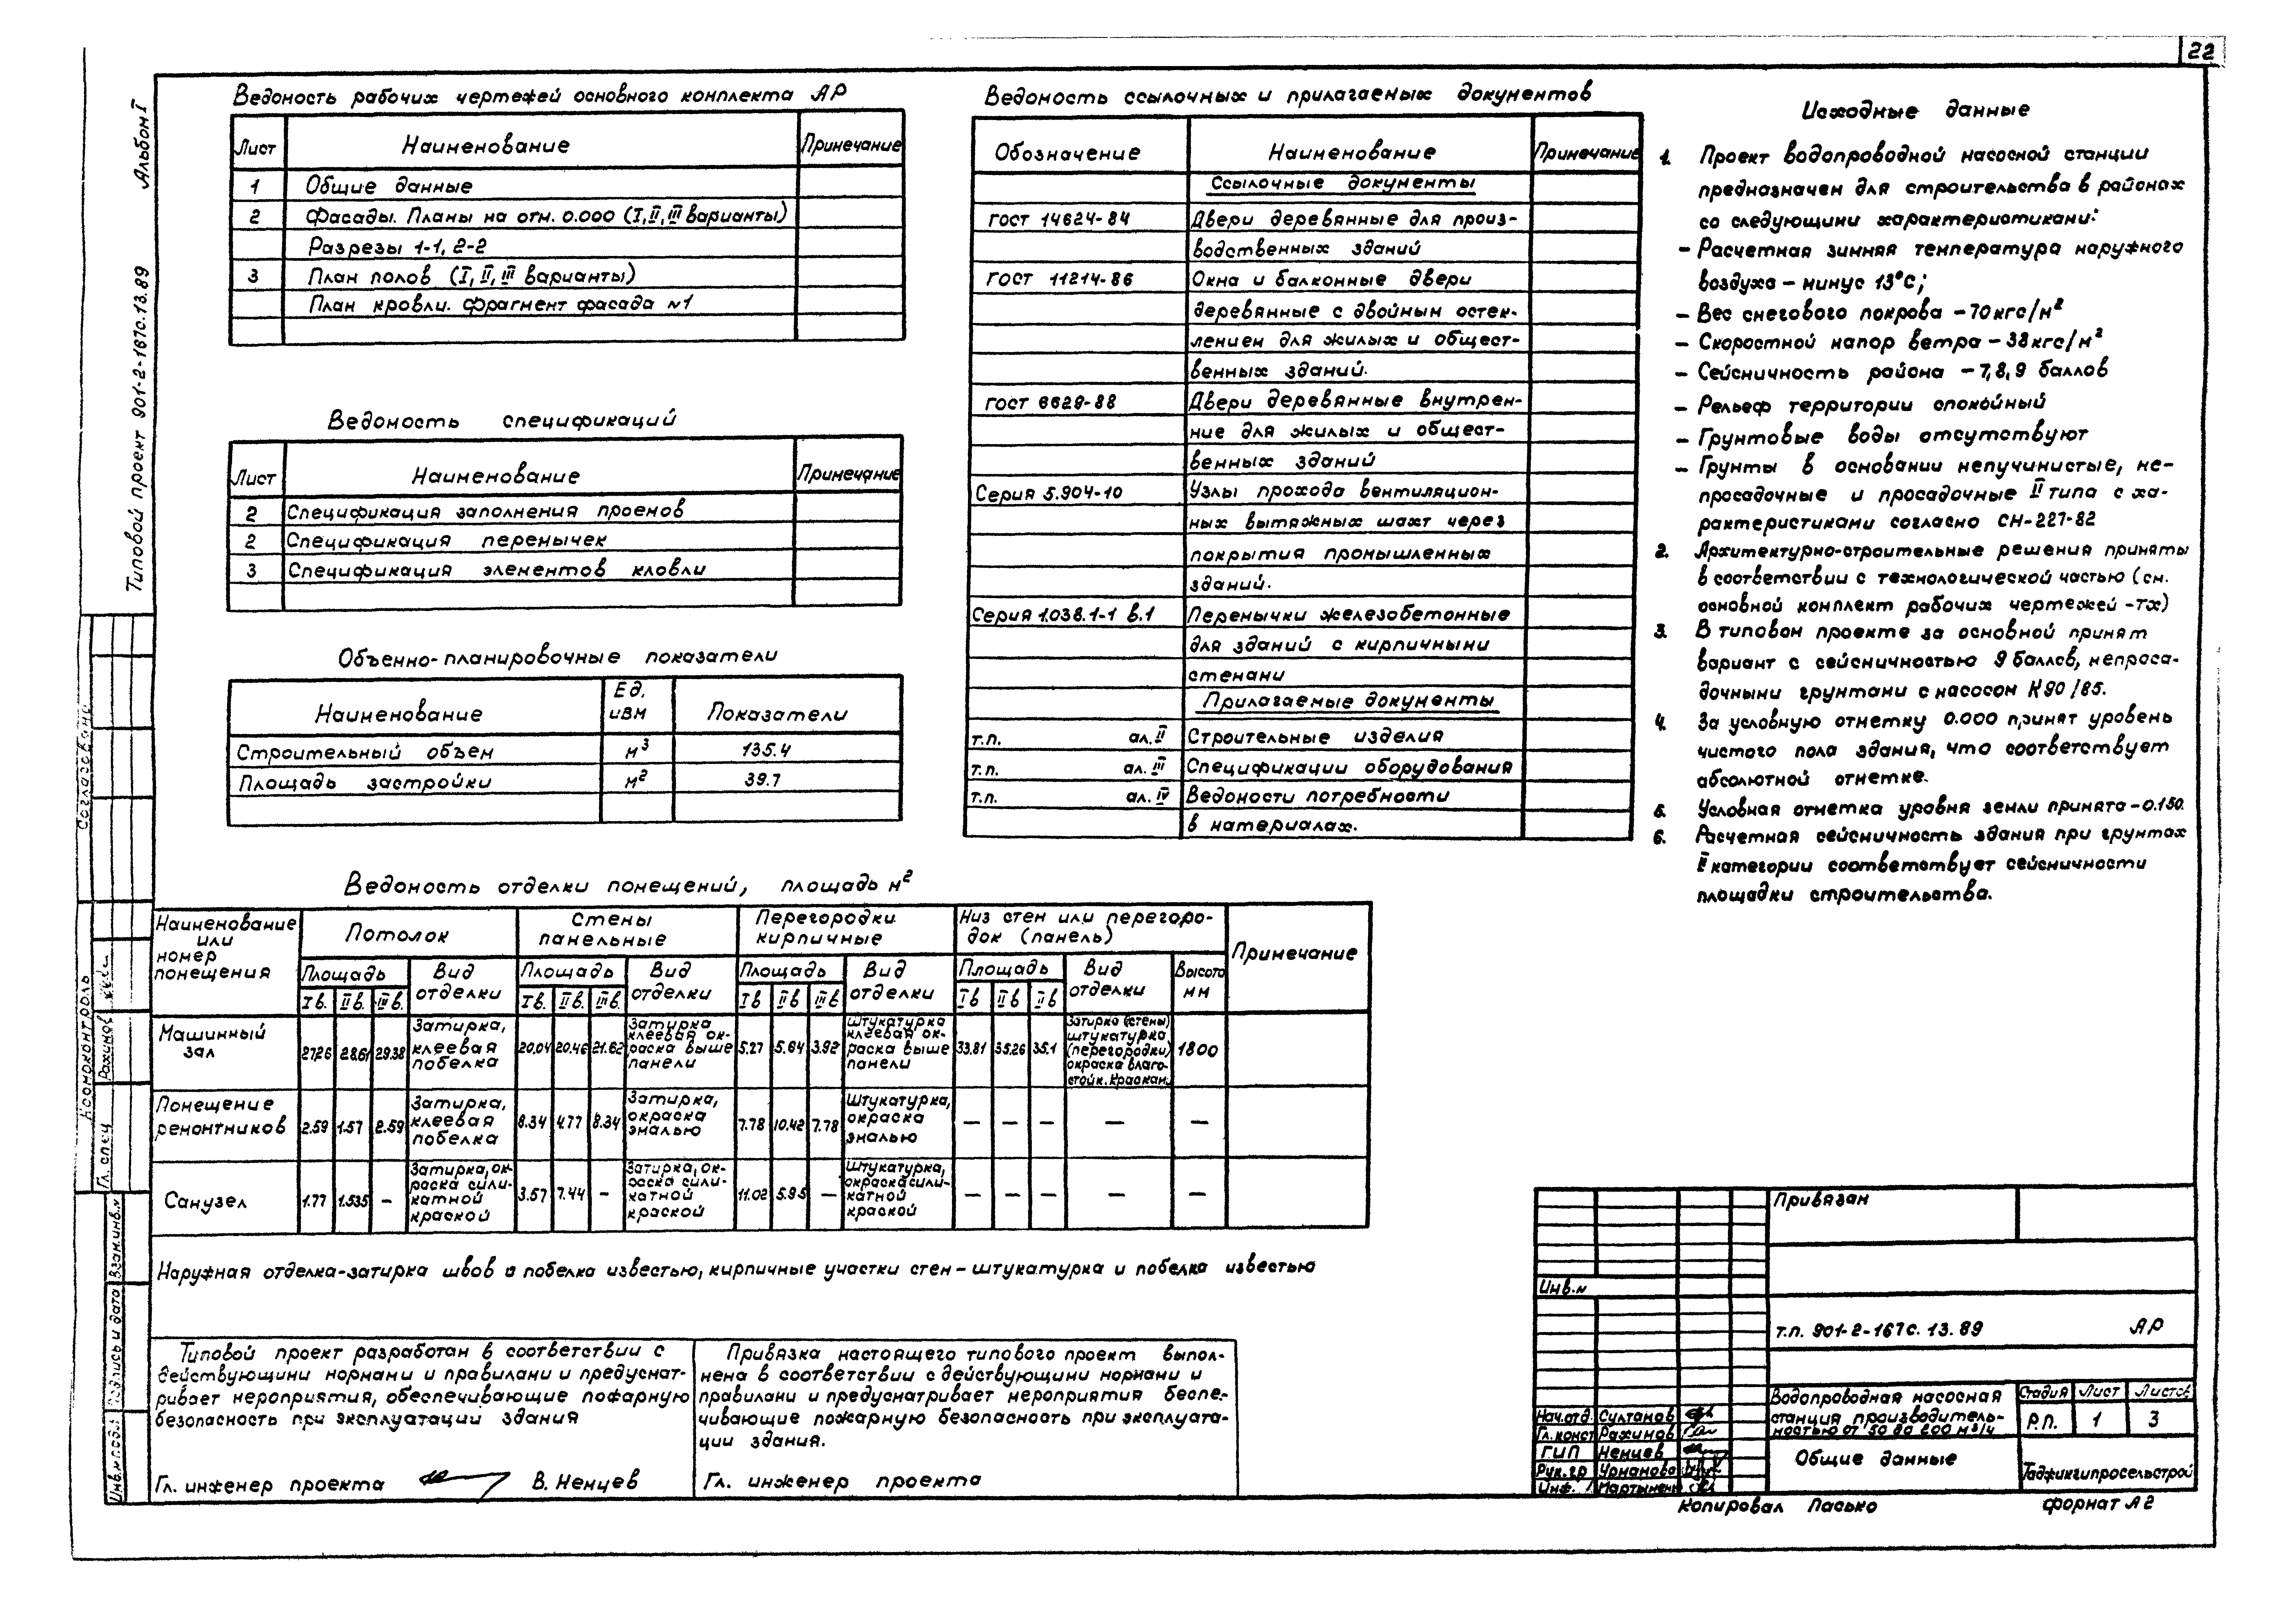 22
Альбом I
Типовой проект 901-2-167с.13.89
Ведомость рабочих чертежей основного комплекта АР
Лист Наименование Примечание
1 Общие данные
2 Фасады. Планы на отм. 0.000 (I, II, III варианты)
Разрезы 1-1, 2-2
3 План полов (I, II, III варианты)
План кровли. Фрагмент фасада №1
Ведомость спецификаций
Лист Наименование Примечание
2 Спецификация заполнения проемов
2 Спецификация перемычек
3 Спецификация элементов кловли
Объемно-планировочные показатели
Наименование Ед. изм Показатели
Строительный объем м³ 135.4
Площадь застройки м² 39.7
Ведомость ссылочных и прилагаемых документов
Обозначение Наименование Примечание
Ссылочные документы
ГОСТ 14624-84 Двери деревянные для произ-
водственных зданий
ГОСТ 11214-86 Окна и балконные двери
деревянные с двойным остек-
лением для жилых и общест-
венных зданий.
ГОСТ 6629-88 Двери деревянные внутрен-
ние для жилых и общест-
венных зданий
Серия 5.904-10 Узлы прохода вентиляцион-
ных вытяжных шахт через
покрытия промышленных
зданий.
Серия 1.038.1-1 в.1 Перемычки железобетонные
для зданий с кирпичными
стенами
Прилагаемые документы
т.п. ал. II Строительные изделия
т.п. ал. III Спецификации оборудования
т.п. ал. IV Ведомости потребности
в материалах.
Исходные данные
1. Проект водопроводной насосной станции
предназначен для строительства в районах
со следующими характеристиками:
- Расчетная зимняя температура наружного
воздуха - минус 13°С;
- Вес снегового покрова - 70 кгс/м²
- Скоростной напор ветра - 38 кгс/м²
- Сейсмичность района - 7, 8, 9 баллов
- Рельеф территории спокойный
- Грунтовые воды отсутствуют
- Грунты в основании непучинистые, не-
просадочные и просадочные II типа с ха-
рактеристиками согласно СН-227-82
2. Архитектурно-строительные решения приняты
в соответствии с технологической частью (см.
основной комплект рабочих чертежей - ТХ)
3. В типовом проекте за основной принят
вариант с сейсмичностью 9 баллов, непроса-
дочными грунтами с насосом К90/85.
4. За условную отметку 0.000 принят уровень
чистого пола здания, что соответствует
абсолютной отметке.
5. Условная отметка уровня земли принята -0.150.
6. Расчетная сейсмичность здания при грунтах
II категории соответствует сейсмичности
площадки строительства.
Ведомость отделки помещений, площадь м²
Наименование или номер помещения Потолок Стены панельные Перегородки кирпичные Низ стен или перегоро-
док (панель) Примечание
Площадь Вид отделки Площадь Вид отделки Площадь Вид отделки Площадь Вид отделки Высота мм
I в. II в. III в. I в. II в. III в. I в II в III в I в II в II в
Машинный зал 27.26 28.61 29.38 Затирка, клеевая побелка 20.04 20.46 21.62 Затирка клеевая ок-
раска выше панели 5.27 5.64 3.92 Штукатурка клеевая ок-
раска выше панели 33.81 35.26 35.1 Затирка (стены) штукатурка (перегородки) окраска влаго-
стойк. краскам. 1800
Помещение ремонтников 2.59 1.57 2.59 Затирка, клеевая побелка 8.34 4.77 8.34 Затирка, окраска эмалью 7.78 10.42 7.78 Штукатурка, окраска эмалью — — — — —
Санузел 1.77 1.535 — Затирка, ок-
раска сили-
катной краской 3.57 7.44 — Затирка, ок-
раска сили-
катной краской 11.02 5.95 — Штукатурка, окраска сили-
катной краской — — — — —
Наружная отделка-затирка швов и побелка известью, кирпичные участки стен - штукатурка и побелка известью
Типовой проект разработан в соответствии с
действующими нормами и правилами и предусмат-
ривает мероприятия, обеспечивающие пожарную
безопасность при эксплуатации здания
Гл. инженер проекта В. Немцев
Привязка настоящего типового проект выпол-
нена в соответствии с действующими нормами и
правилами и предусматривает мероприятия беспе-
чивающие пожарную безопасность при эксплуата-
ции здания.
Гл. инженер проекта
Привязан
Инв.н
т.п. 901-2-167с. 13. 89 АР
Водопроводная насосная
станция производитель-
ностью от 50 до 200 м³/ч
Стадия Лист Листов
Р.П. 1 3
Общие данные
Таджикгипросельстрой
Нач.отд. Султанов
Гл.конст Рахимов
ГИП Немцев
Рук.гр Урманова
Инж. Мартынен
Копировал Пасько
формат А2
Согласовано
Нормоконтроль
Гл. спец Рахимов
Взам.инв.н
Подпись и дата
Инв.н.подл